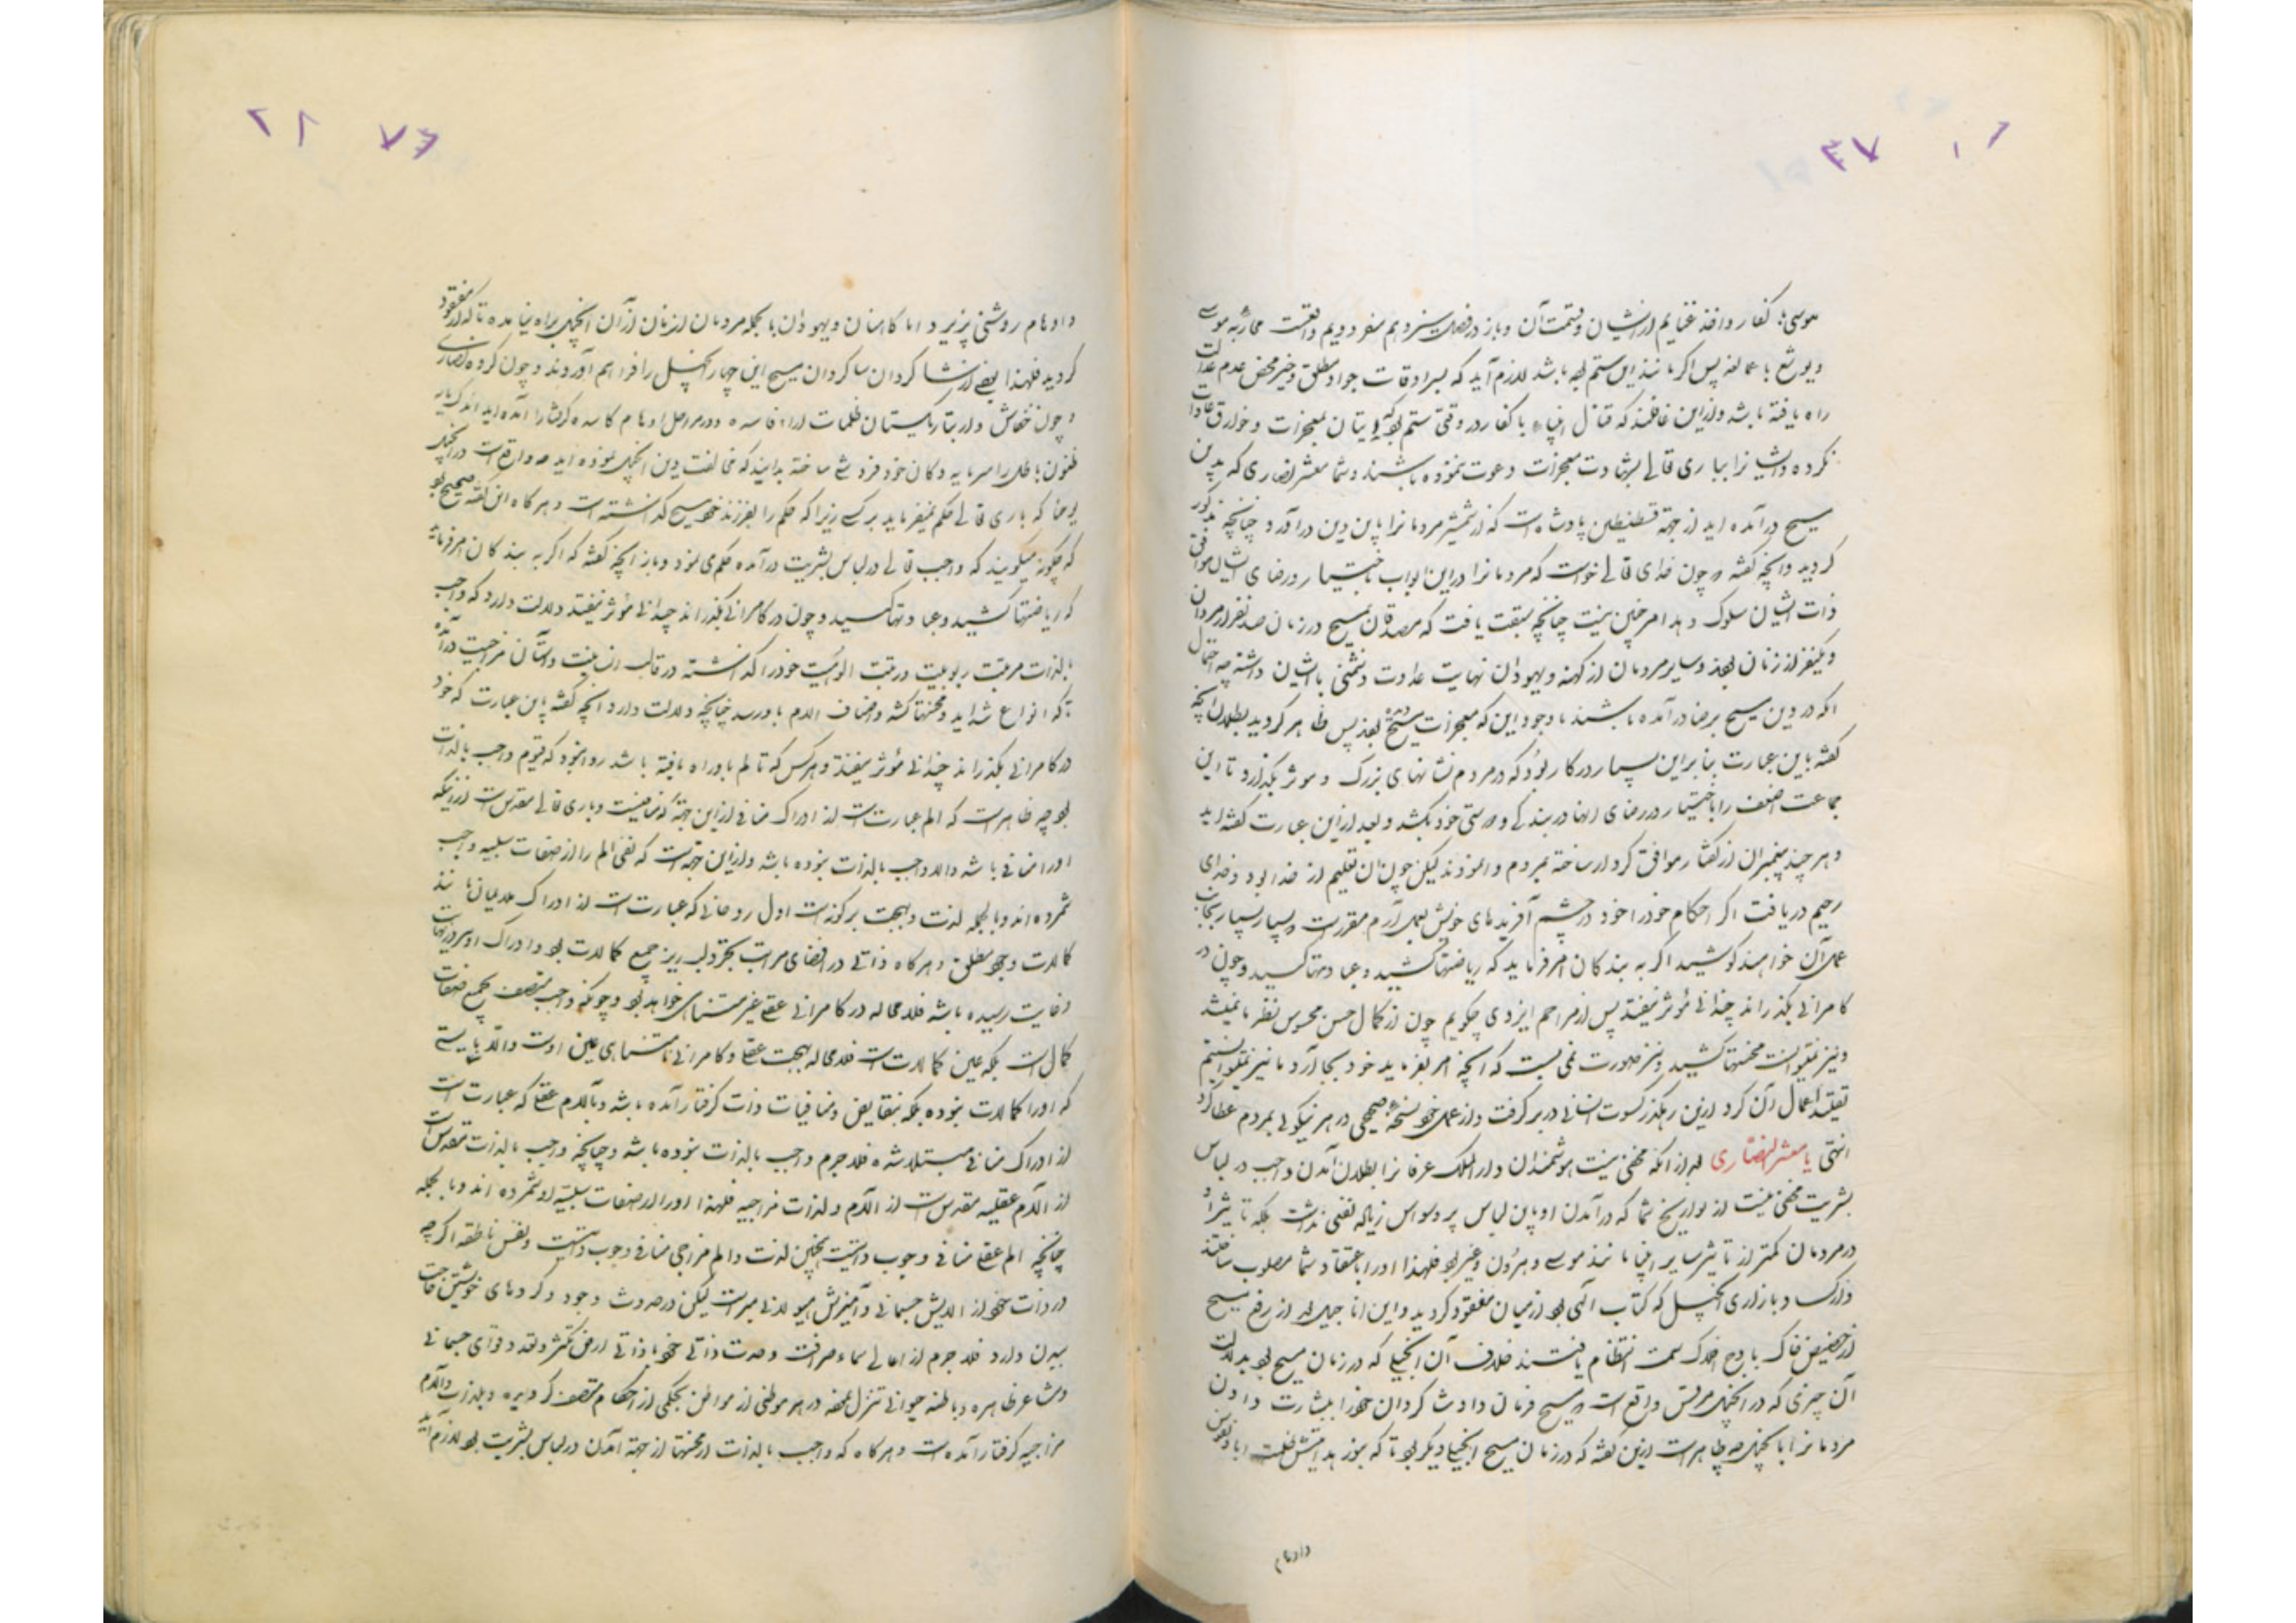 ۳۷
موسی با کفار و اخذ غنایم از ایشان و قسمت آن و باز در فصل سیزدهم سفر دویم واقعست محاربه موسی
و یوشع با عمالقه پس اگر مانند این ستم بوده باشد لازم آید که بسرادقات جواد مطلق و خیر محض عدم عدالت
راه یافته باشد و از این غافلند که قتال انبیاء با کفار در وقتی ستم بود که اتیان بمعجزات و خوارق عادات
نکرده و ایشانرا بباری تعالی بشهادت معجزات دعوت ننموده باشند و شما معشر نصاری که بدین
مسیح درآمده اید از جهة قسطنطین پادشاه است که از شمشیر مردمانرا باین دین درآورد چنانچه مذکور
گردید و آنچه گفته و چون خدای تعالی خواست که مردمانرا در این ابواب باختیار و رضای ایشان موافق
ذات ایشان سلوک دهد امر چنین نیست چنانچه سبقت یافت که مصدقان بمسیح در زمان صد نفر از مردان
و یکنفر از زنان بودند و سایر مردمان از کهنه و یهودان نهایت عداوت و دشمنی باایشان داشته چه احتمال
آنکه در دین مسیح برضا درآمده باشند با وجود این که معجزات مسیح بودند پس ظاهر گردید بطلان آنچه
گفته باین عبارت بنا براین بسیار در کار بود که در مردم نشانهای بزرگ و موثر بگذارد تا این
جماعت اضعف را باختیار و رضای اینها در بندگی و درستی خود بکشد و بعد از این عبارت گفته اید
و هر چند پیغمبران از گفتار موافق کردار ساخته بمردم وانمودند لیکن چون آن تعلیم از خدا بود و خدای
رحیم دریافت اگر احکام خود را خود در چشم آفریدهای خویش بعمل آرم مقررست بسیار بسیار بجانب
عمل آن خواهند کوشید اگر به بندگان امر فرماید که ریاضتها کشید و عبادتها کنید و چون در
کامرانی بگذراند چندانی مؤثر نیفتد پس از مراحم ایزدی چگویم چون از کمال حسن محسوس نظر ما نمیشد
و نیز نمیتوانست محنتها کشید و نیز صورت نمی بست که آنچه امر بفرماید خود بجا آرد ما نیز نمیتوانستیم
تقلید اعمال آن کرد ازین رهگذر کسوت انسانی در بر گرفت و از عمل خود نسخهٔ صحیحی در هر نیکوئی بمردم عطا کرد
انتهی یا معشر النصاری بعد از آنکه مخفی نیست هوشمندان دارالملک عرفانرا بطلان آمدن واجب در لباس
بشریت مخفی نیست از تواریخ شما که درآمدن او باین لباس پر وسواس زیاده نفعی نداشت بلکه تاثیر او
در مردمان کمتر از تاثیر سایر انبیا مانند موسی و هرون و غیره بود فلهذا او را باعتقاد شما مصلوب ساختند
و از کساد بازاری انجیل که کتاب الهی بود از میان مفقود گردید و این اناجیل بعد از رفع مسیح
از حضیض خاک باوج افلاک سمت انتظام یافتند خلاف آن انجیلی که در زمان مسیح بود بدلالت
آن چیزی که در انجیل مرقس واقع است که مسیح فرمان داد شاگردان خود را ببشارت دادن
مردمانرا بانجیل چه ظاهر است ازین گفته که در زمان مسیح انجیلی دیگر بود تا که بنور هدایتش ظلمت
و اوهام
۲۸
و اوهام روشنی پذیرد اما کاهنان و یهودان بالجمله مردمان از زنان ازآن انجیل براه نیامده تا که مفقود
گردید فلهذا بعضی از شاگردان شاگردان مسیح این چهار انجیل را فراهم آوردند و چون گروه نصاری
چون خفاش در تاریکستان ظلمات آراء فاسده و در مراحل اوهام کاسده گرفتار آمده اید
ظنون باطل را سرمایه دکان خود فروشی ساخته بدانید که مخالفت دین انجیل نموده اید چه واقع است در انجیل
یوحنا که باری تعالی حکم نمیفرماید بر کسی زیرا که حکم را بفرزند خود مسیح گذاشته است و هر گاه این گفته صحیح بود
که چگونه میگویند که واجب تعالی در لباس بشریت درآمده حکم می نمود و باز آنچه گفته که اگر به بندگان امر فرماید
که ریاضتها کشید و عبادتها کنید و چون در کامرانی بگذراند چندانی مؤثر نیفتد دلالت دارد که واجب
بالذات مرتبت ربوبیت و رتبت الوهیت خود را گذاشته در قالب انسانیت
تا که انواع شداید و محنتها کشد و اصناف آلام باو رسد چنانچه دلالت دارد آنچه گفته باین عبارت که خود
در کامرانی بگذراند چندانی مؤثر نیفتد و هر کس که تالم باو راه یافته باشد روا نبود که قیوم واجب بالذات
بود چه ظاهر است که الم عبارتست از ادراک منافی از این جهة که منافیست و باری تعالی مقدس است از اینکه
او را منافی باشد والا واجب بالذات نبوده باشد و از این جهة است که نفی الم را از صفات سلبیه واجب
شمرده اند و بالجمله لذت و بهجت بر دو گونه است اول روحانی که عبارت است از ادراک ملایمات مانند
کمالات وجود مطلق و هر گاه ذاتی در اقصای مراتب تجرد لبریز جمیع کمالات بود و ادراک او بمرتبهٔ نهایت
و غایت رسیده باشد فلامحاله در کامرانی عقلی غیر متناهی خواهد بود و چونکه واجب متصف بجمیع صفات
کمال است بلکه عین کمالات است فلامحاله بهجت عقلی و کامرانی نامتناهی عین اوست والا بایستی
که او را کمالات نبوده بلکه بنقایص و منافیات ذات گرفتار آمده باشد و بآلام عقلی که عبارت است
از ادراک منافی مبتلا شده فلاجرم واجب بالذات نبوده باشد و چنانچه واجب بالذات مقدس است
از آلام عقلیه مقدس است از آلام و لذات مزاجیه فلهذا او را از صفات سلبیه او شمرده اند و بالجمله
چنانچه الم عقلی منافی وجوب ذاتیست همچنین لذت و الم مزاجی منافی وجوب ذاتیست و نفس ناطقه اگرچه
در ذات خود از آلایش جسمانی و آمیزش هیولانی مبراست لیکن در حدوث وجود و کردهای خویش حاجت
ببدن دارد فلاجرم از اعالی سماء صرافت وحدت ذاتی خود باراضی تکثر و تعدد قوای جسمانی
و مشاعر ظاهره و باطنه حیوانی تنزل نموده در هر موطنی از مواطن بحکمی از احکام متصف گردیده و بلذات و آلام
مزاجیه گرفتار آمده است و هر گاه که واجب بالذات از محنتها از جهة آمدن در لباس بشریت بود لازم آید